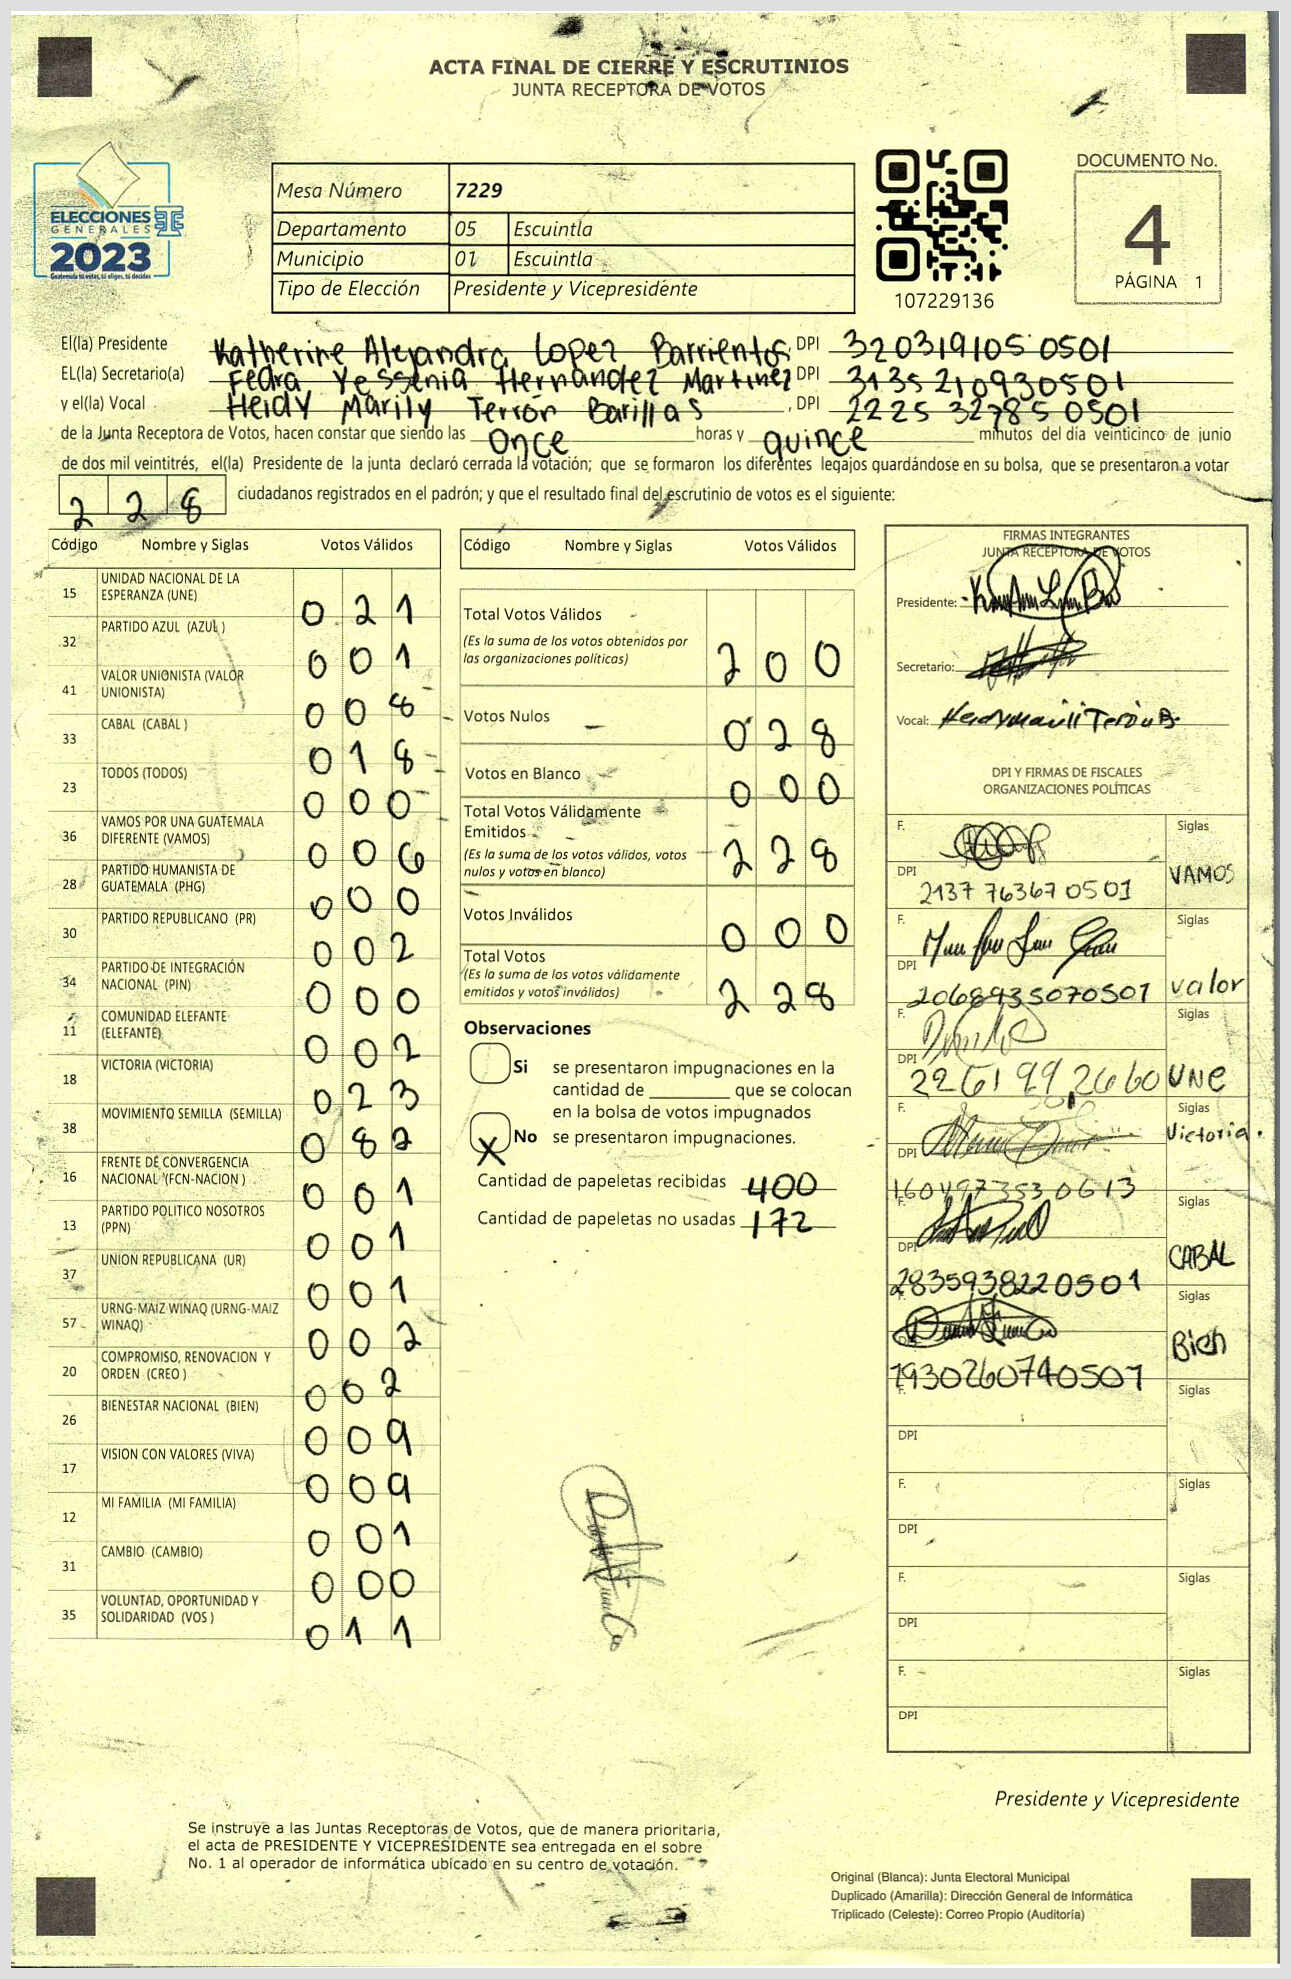 ACTA FINAL DE CIERRE Y ESCRUTINIOS
JUNTA RECEPTORA DE VOTOS
ELECCIONES
GENERALES
2023
Guatemala tú votas, tú eliges, tú decides
Mesa Número 7229
Departamento 05 Escuintla
Municipio 01 Escuintla
Tipo de Elección Presidente y Vicepresidente
107229136
DOCUMENTO No.
4
PÁGINA 1
El(la) Presidente Katherine Alejandra Lopez Barrientos, DPI 3203191050501
EL(la) Secretario(a) Fedra Yessenia Hernandez Martinez DPI 3135210930501
y el(la) Vocal Heidy Marily Terrón Barillas, DPI 2225327850501
de la Junta Receptora de Votos, hacen constar que siendo las Once horas y quince minutos del día veinticinco de junio
de dos mil veintitrés, el(la) Presidente de la junta declaró cerrada la votación; que se formaron los diferentes legajos guardándose en su bolsa, que se presentaron a votar
228 ciudadanos registrados en el padrón; y que el resultado final del escrutinio de votos es el siguiente:
Código Nombre y Siglas Votos Válidos
15 UNIDAD NACIONAL DE LA ESPERANZA (UNE) 021
32 PARTIDO AZUL (AZUL) 001
41 VALOR UNIONISTA (VALOR UNIONISTA) 008
33 CABAL (CABAL) 018
23 TODOS (TODOS) 000
36 VAMOS POR UNA GUATEMALA DIFERENTE (VAMOS) 006
28 PARTIDO HUMANISTA DE GUATEMALA (PHG) 000
30 PARTIDO REPUBLICANO (PR) 002
34 PARTIDO DE INTEGRACIÓN NACIONAL (PIN) 000
11 COMUNIDAD ELEFANTE (ELEFANTE) 002
18 VICTORIA (VICTORIA) 023
38 MOVIMIENTO SEMILLA (SEMILLA) 082
16 FRENTE DE CONVERGENCIA NACIONAL (FCN-NACION) 001
13 PARTIDO POLITICO NOSOTROS (PPN) 001
37 UNION REPUBLICANA (UR) 001
57 URNG-MAIZ WINAQ (URNG-MAIZ WINAQ) 002
20 COMPROMISO, RENOVACION Y ORDEN (CREO) 002
26 BIENESTAR NACIONAL (BIEN) 009
17 VISION CON VALORES (VIVA) 009
12 MI FAMILIA (MI FAMILIA) 001
31 CAMBIO (CAMBIO) 000
35 VOLUNTAD, OPORTUNIDAD Y SOLIDARIDAD (VOS) 011
Código Nombre y Siglas Votos Válidos
Total Votos Válidos 200
(Es la suma de los votos obtenidos por
las organizaciones políticas)
Votos Nulos 028
Votos en Blanco 000
Total Votos Válidamente
Emitidos 228
(Es la suma de los votos válidos, votos
nulos y votos en blanco)
Votos Inválidos 000
Total Votos 228
(Es la suma de los votos válidamente
emitidos y votos inválidos)
Observaciones
Si se presentaron impugnaciones en la
cantidad de ________ que se colocan
en la bolsa de votos impugnados
X No se presentaron impugnaciones.
Cantidad de papeletas recibidas 400
Cantidad de papeletas no usadas 172
FIRMAS INTEGRANTES
JUNTA RECEPTORA DE VOTOS
Presidente:
Secretario:
Vocal:
DPI Y FIRMAS DE FISCALES
ORGANIZACIONES POLÍTICAS
F. Siglas
DPI 2137763670501 VAMOS
F. Siglas
DPI 2068935070501 valor
F. Siglas
DPI UNE
F. Siglas
DPI 1604973530613 Victoria.
F. Siglas
DPI 2835938220501 CABAL
F. Siglas
DPI 1930260740501 Bien
F. Siglas
DPI
F. Siglas
DPI
F. Siglas
DPI
F. Siglas
DPI
Presidente y Vicepresidente
Se instruye a las Juntas Receptoras de Votos, que de manera prioritaria,
el acta de PRESIDENTE Y VICEPRESIDENTE sea entregada en el sobre
No. 1 al operador de informática ubicado en su centro de votación.
Original (Blanca): Junta Electoral Municipal
Duplicado (Amarilla): Dirección General de Informática
Triplicado (Celeste): Correo Propio (Auditoría)